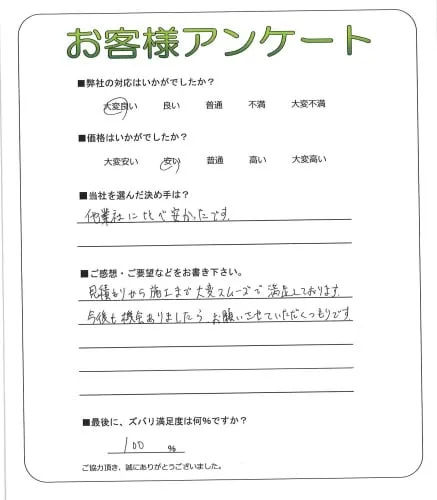 お客様アンケート
■弊社の対応はいかがでしたか？
大変良い 良い 普通 不満 大変不満
■価格はいかがでしたか？
大変安い 安い 普通 高い 大変高い
■当社を選んだ決め手は？
他業社に比べ安かったです.
■ご感想・ご要望などをお書き下さい。
見積もりから施工まで大変スムーズで満足しております.
今後も機会ありましたら、お願いさせていただくつもりです
■最後に、ズバリ満足度は何%ですか？
100 %
ご協力頂き、誠にありがとうございました。